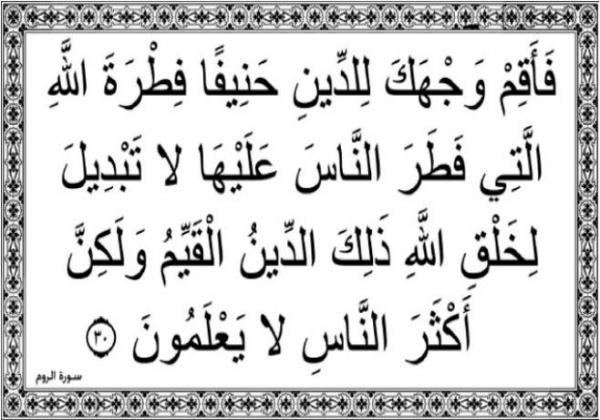 فَأَقِمْ وَجْهَكَ لِلدِّينِ حَنِيفًا فِطْرَةَ اللَّهِ
الَّتِي فَطَرَ النَّاسَ عَلَيْهَا لا تَبْدِيلَ
لِخَلْقِ اللَّهِ ذَلِكَ الدِّينُ الْقَيِّمُ وَلَكِنَّ
أَكْثَرَ النَّاسِ لا يَعْلَمُونَ ٣٠
سورة الروم